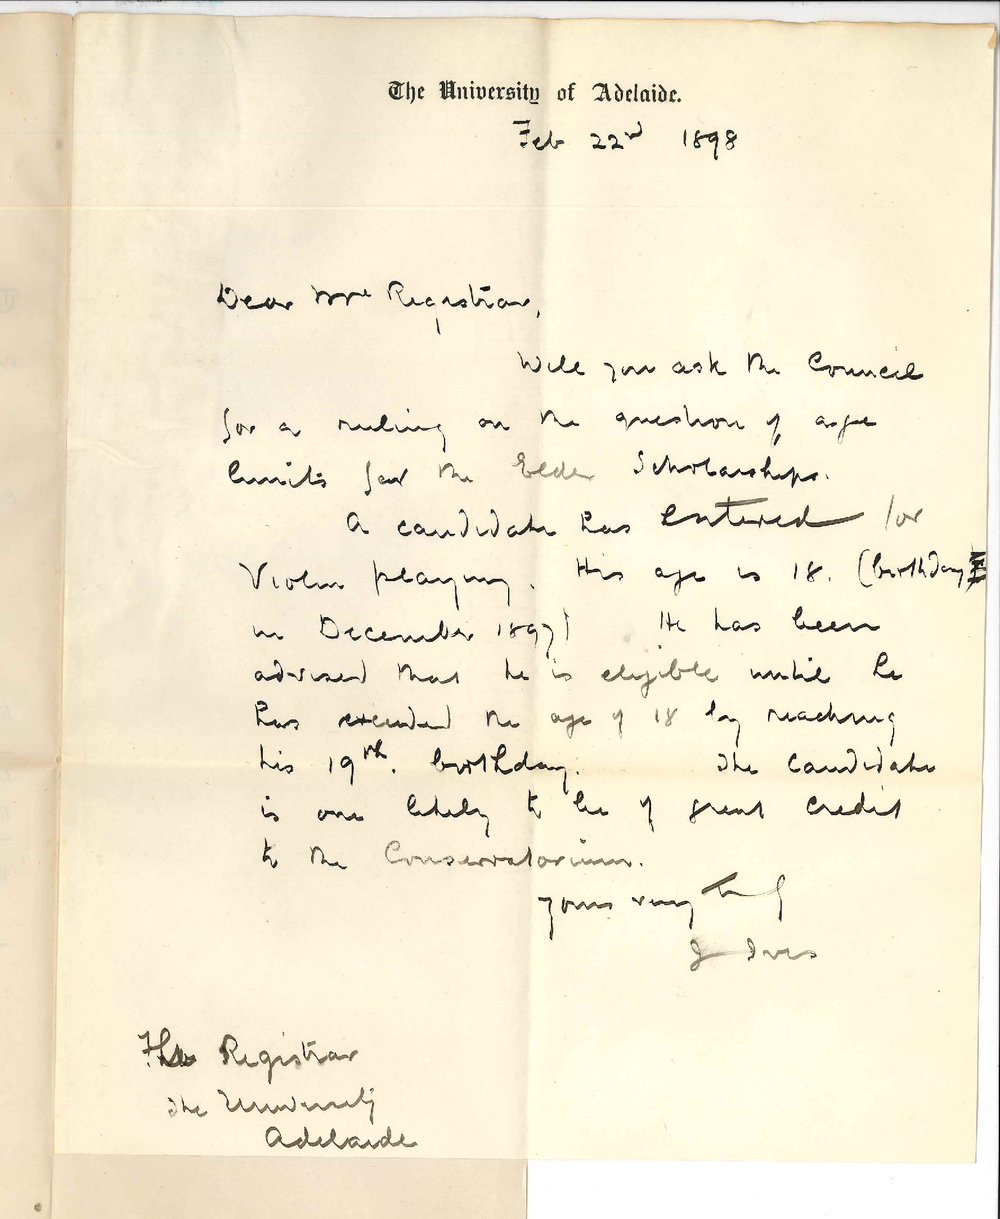 The University of Adelaide.
Feb 22nd 1898
Dear Mr Registrar,
Will you ask the Council
for a ruling on the question of age
limits for the Elder Scholarships.
A candidate has entered for
Violin playing. His age is 18. (birthday
in December 1897) He has been
advised that he is eligible until he
has exceeded the age of 18 by reaching
his 19th. birthday. The candidate
is one likely to be of great credit
to the Conservatorium.
Yours very truly
J Ives
The Registrar
The University
Adelaide